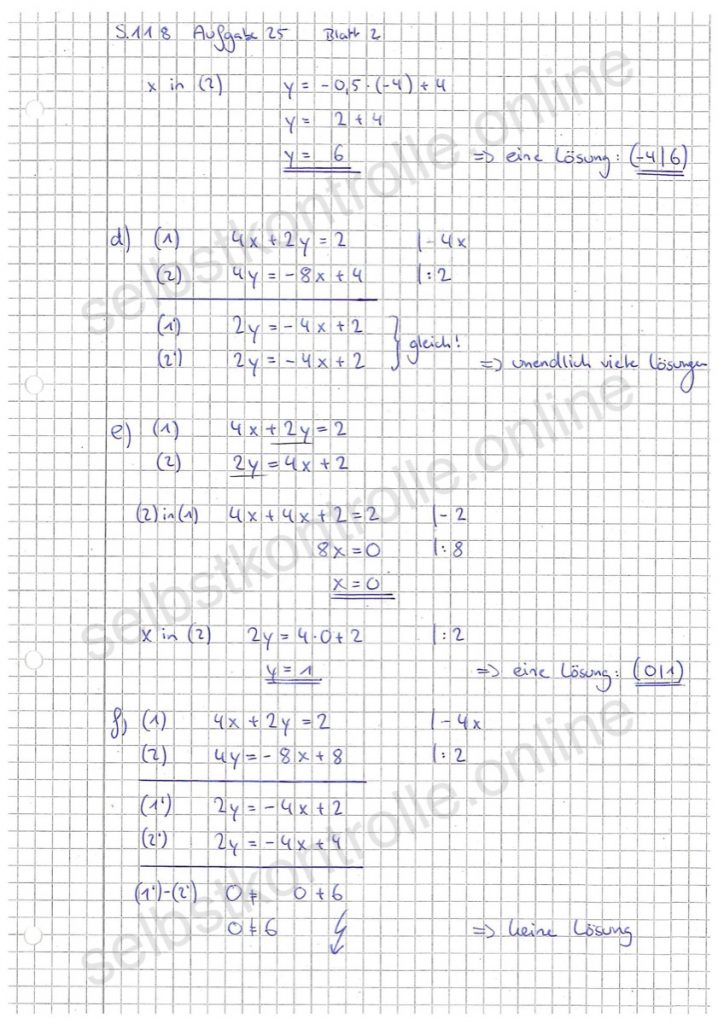 S.118 Aufgabe 25 Blatt 2
x in (2) y = -0,5 · (-4) + 4
y = 2 + 4
y = 6 => eine Lösung: (-4|6)
d) (1) 4x + 2y = 2 |-4x
(2) 4y = -8x + 4 |:2
(1') 2y = -4x + 2
gleich!
(2') 2y = -4x + 2 => unendlich viele Lösungen
e) (1) 4x + 2y = 2
(2) 2y = 4x + 2
(2) in (1) 4x + 4x + 2 = 2 |-2
8x = 0 |:8
x = 0
x in (2) 2y = 4·0 + 2 |:2
y = 1 => eine Lösung: (0|1)
f) (1) 4x + 2y = 2 |-4x
(2) 4y = -8x + 8 |:2
(1') 2y = -4x + 2
(2') 2y = -4x + 4
(1')-(2') 0 ≠ 0 + 6
0 ≠ 6 => keine Lösung
selbstkontrolle.online
selbstkontrolle.online
selbstkontrolle.online